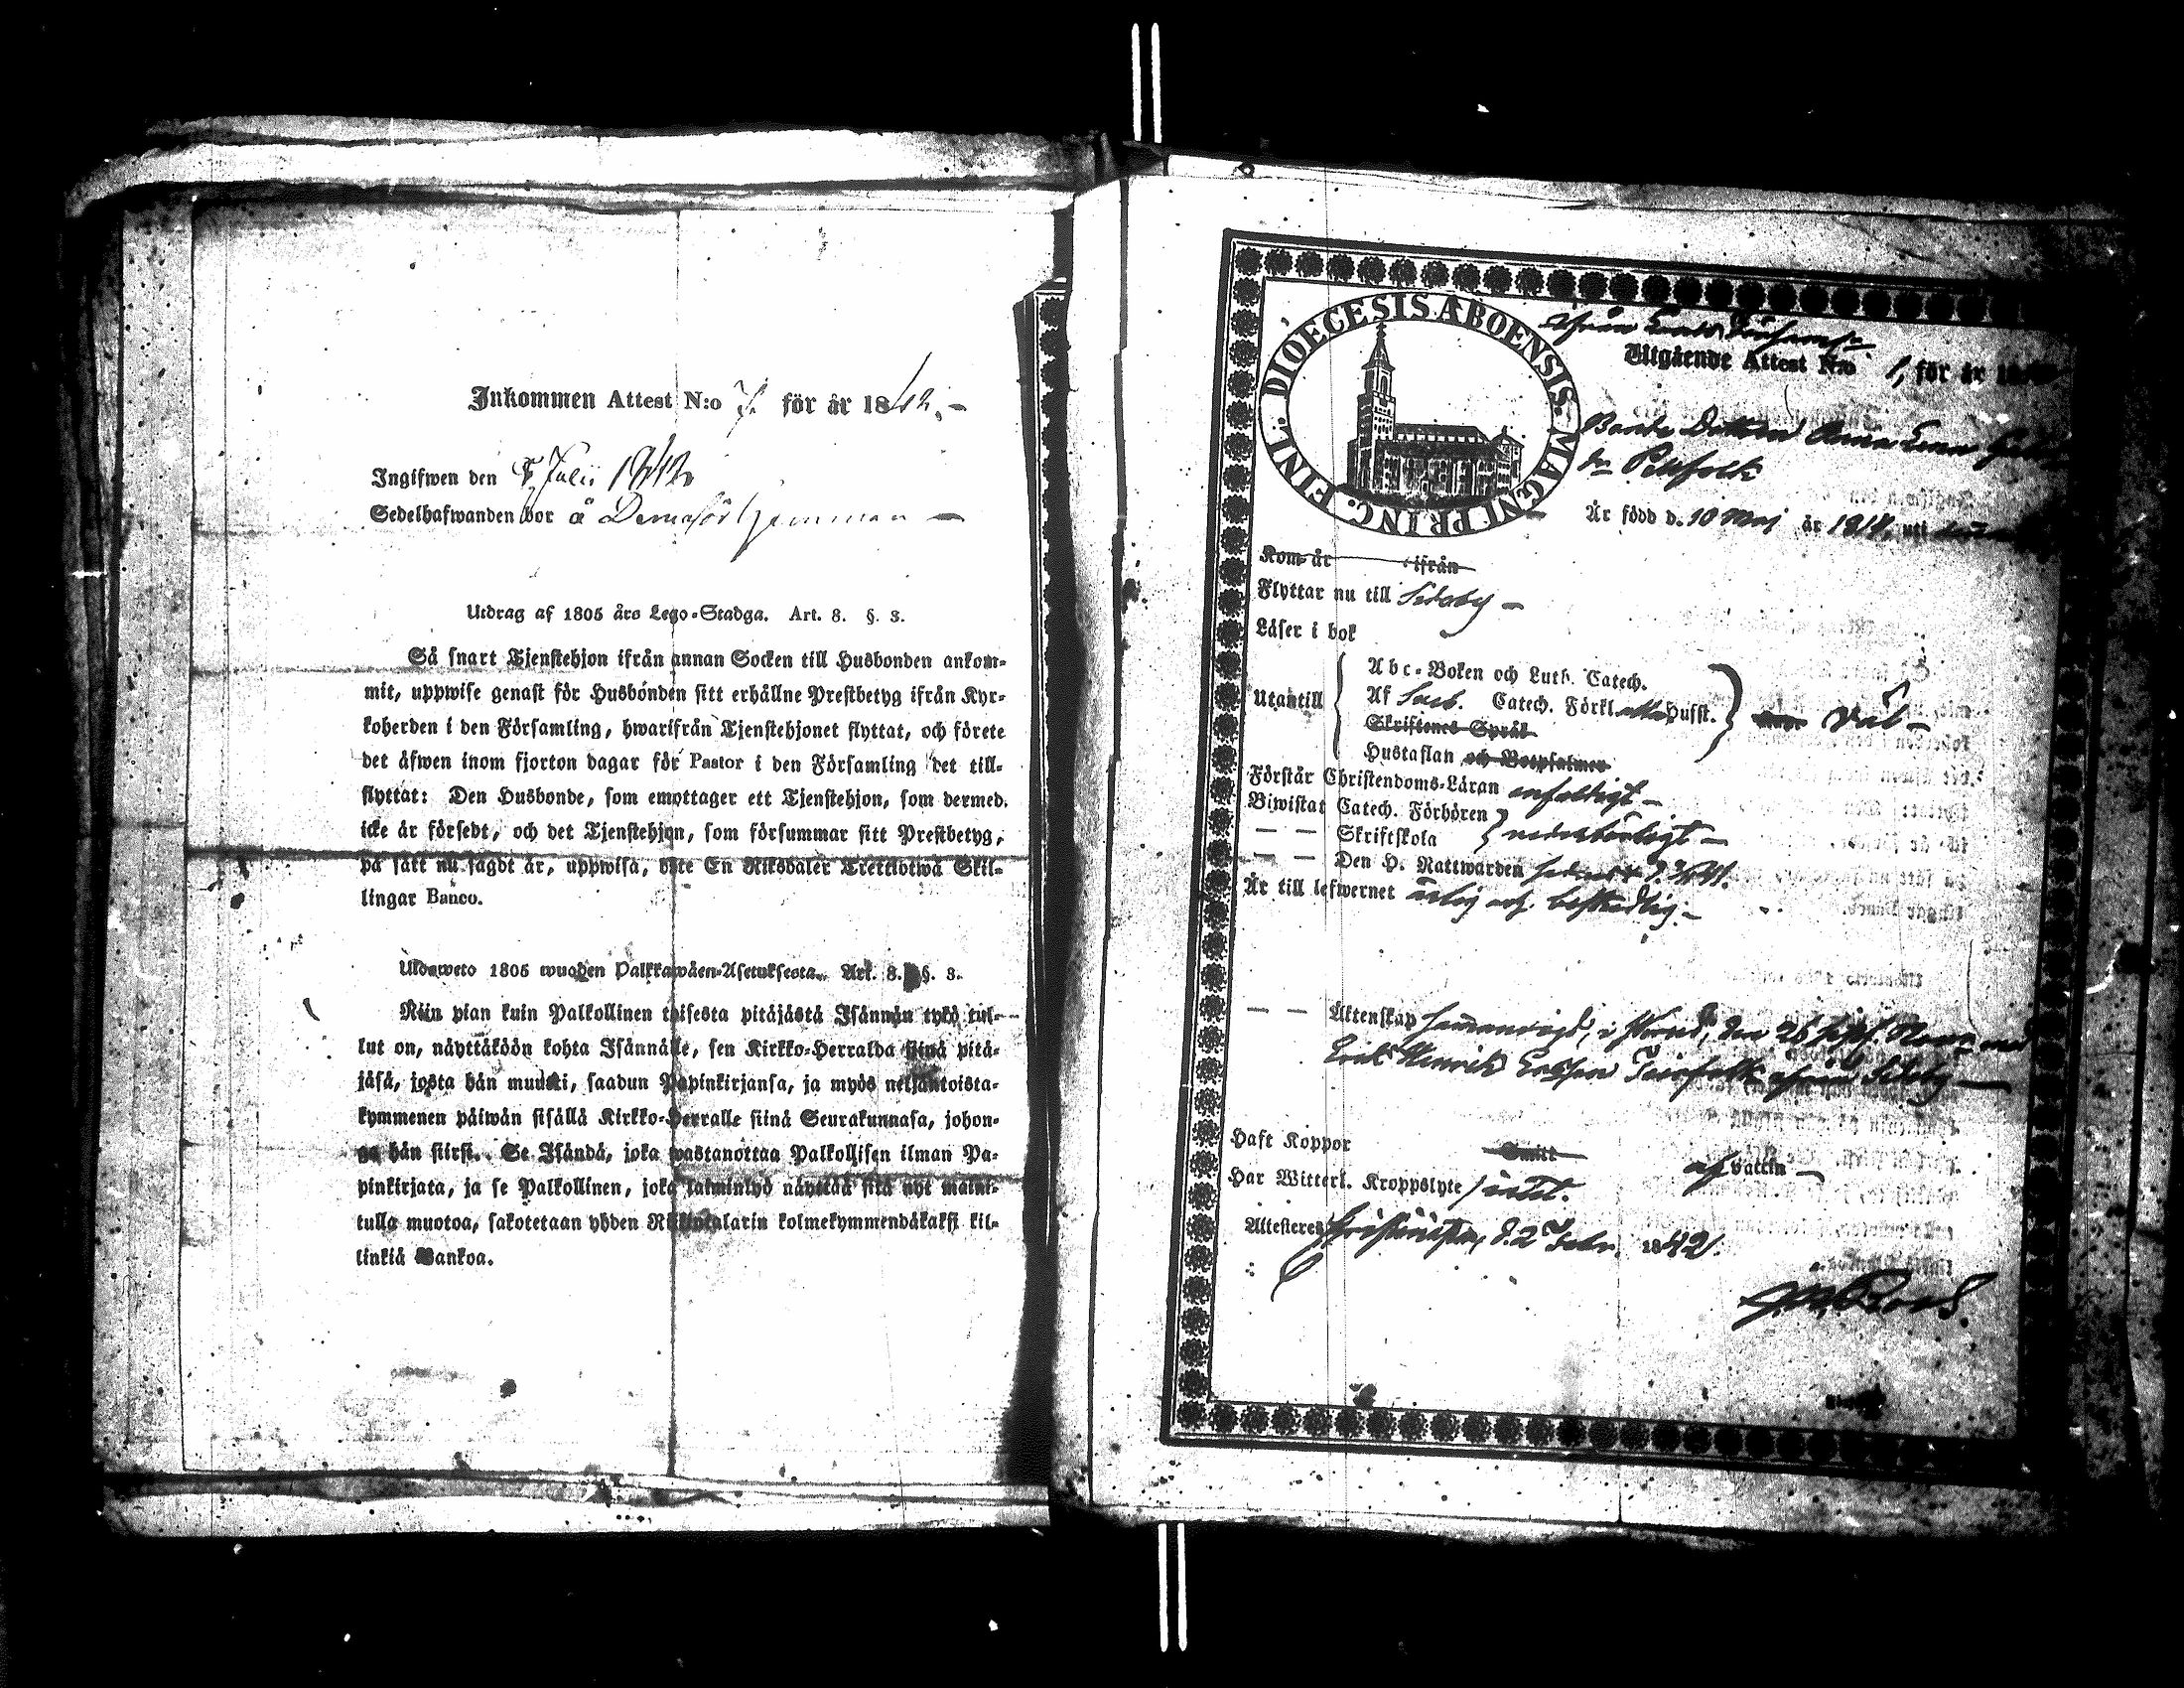 Inkommen Attest N:o 7. för år 1842.
Ingifwen den Julii 1842
Sedelhafwanden bor å hemman
Utdrag af 1805 års Lego-Stadga. Art. 8. §. 3.
Så snart Tjenstehjon ifrån annan Socken till Husbonden ankom-
mit, uppwise genast för Husbonden sitt erhållne Prestbetyg ifrån Kyr-
koherden i den Församling, hwarifrån Tjenstehjonet flyttat, och förete
det äfwen inom fjorton dagar för Pastor i den Församling det till-
flyttat: Den Husbonde, som emottager ett Tjenstehjon, som dermed
icke är försedt, och det Tjenstehjon, som försummar sitt Prestbetyg,
på sätt nu sagdt är, uppwisa, böte En Riksdaler Trettiotwå Skil-
lingar Banco.
Ulosweto 1805 wuoden Palkkawäen-Asetuksesta. Art. 8. §. 3.
Niin pian kuin Palkollinen toisesta pitäjästä Isännän tykö tul-
lut on, näyttäköön kohta Isännälle, sen Kirkko-Herralda siinä pitä-
jäsä, josta hän muutti, saadun Papinkirjansa, ja myös neljäntoista-
kymmenen päiwän sisällä Kirkko-Herralle siinä Seurakunnasa, johon-
ga hän siirsi. Se Isändä, joka wastanottaa Palkollisen ilman Pa-
pinkirjata, ja se Palkollinen, joka laiminlyö näyttää sitä nyt maini-
tulla muotoa, sakotetaan yhden Riikintalarin kolmekymmendäkaksi kil-
linkiä Bankoa.
DIOECESIS ABOENSIS. MAGNI PRINC. FINL.
Utgående Attest N:o 1, för år
Bonde Dottren Anna
Pellfolk
Är född d. 10 Maj år 1814, uti
Kom år ifrån
Flyttar nu till Sideby
Läser i bok
Utantill
Abc-Boken och Luth. Catech.
Af Catech. Förkl. Hufst.
Skriftenes Språk
Hustaflan och Botpsalmer
väl
Förstår Christendoms-Läran enfaldigt
Biwistat Catech. Förhören
— — Skriftskola
— — Den H. Nattwarden
Är till lefwernet ärlig och beskedlig.
— — Äktenskap den 26 Sept.
Henrik Sideby
Haft Koppor Smitt af Vaccin
Har Witterl. Kroppslyte intet.
Attesteres d. 2 Febr. 1842.